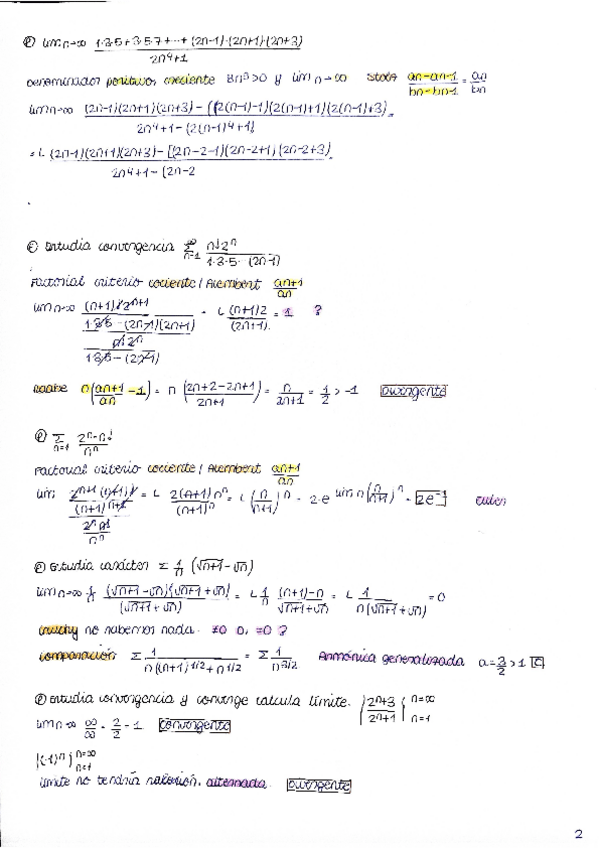 lim n→∞ 1·3·5+3·5·7+···+(2n-1)·(2n+1)·(2n+3) / 2n⁴+1
Denominador positivo, creciente 8n³>0 y lim n→∞ Stolz an-an-1 / bn-bn-1 = an / bn
lim n→∞ (2n-1)(2n+1)(2n+3) - ((2(n-1)-1)(2(n-1)+1)(2(n-1)+3) / 2n⁴+1-(2(n-1)⁴+1) =
= L (2n-1)(2n+1)(2n+3) - [(2n-2-1)(2n-2+1)(2n-2+3) / 2n⁴+1-(2n-2
Estudia convergencia ∑ n=1 ∞ n! 2ⁿ / 1·3·5· (2n-1)
Factorial criterio cociente / Alembert an+1 / an
lim n→∞ (n+1)! 2ⁿ⁺¹ / 1·3·5 ··(2n-1)(2n+1) = L (n+1)2 / (2n+1) = 1 ?
n! 2ⁿ / 1·3·5··(2n-1)
Raabe n(an+1 / an -1) = n (2n+2-2n+1 / 2n+1) = n / 2n+1 = 1/2 > -1 Divergente
∑ n=1 2ⁿ·n! / nⁿ
Factorial criterio cociente / Alembert an+1 / an
lim 2ⁿ⁺¹ (n+1)! / (n+1)ⁿ⁺¹ = L 2(n+1) nⁿ / (n+1)ⁿ = L (n / n+1)ⁿ = 2·e lim n(n / n+1)ⁿ = 2e⁻¹ euler
2ⁿ n! / nⁿ
Estudia carácter ∑ 1/n (√n+1-√n)
lim n→∞ 1/n (√n+1-√n)(√n+1+√n) / (√n+1+√n) = L 1/n (n+1)-n / √n+1+√n = L 1 / n(√n+1+√n) = 0
cauchy no sabemos nada. ≠0 D, =0 ?
comparación ∑ 1 / n((n+1)^1/2+n^1/2 = ∑ 1 / n^3/2 Armónica generalizada a=3/2>1 C
Estudia convergencia y converge calcula límite. {2n+3 / 2n+1} n=∞ n=1
lim n→∞ ∞/∞ = 2/2 = 1 Convergente
{(-1)ⁿ} n=∞ n=1
límite no tendría alternada. Divergente
2